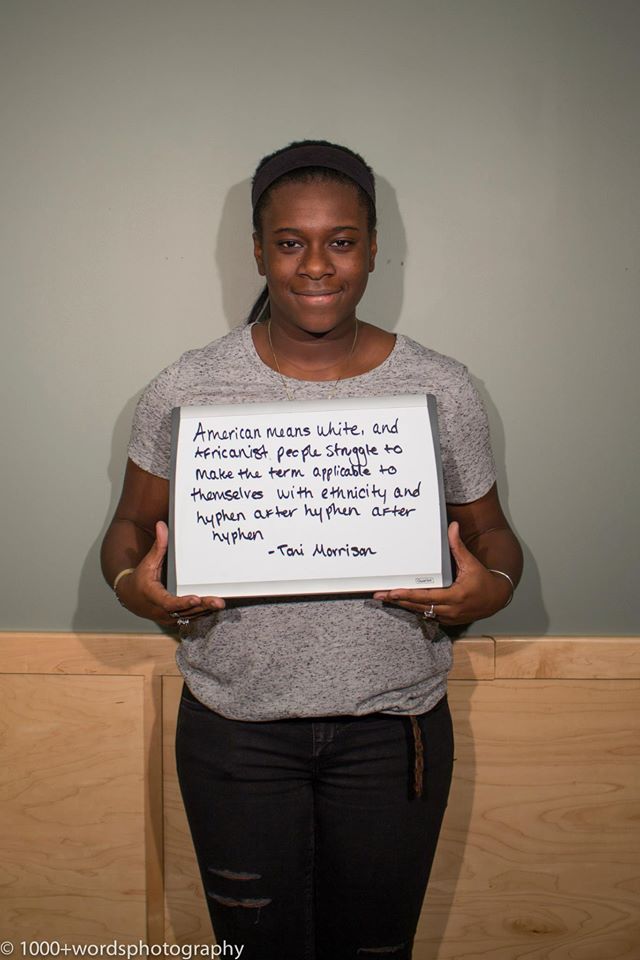 American means white, and
Africanist people struggle to
make the term applicable to
themselves with ethnicity and
hyphen after hyphen after
hyphen
-Toni Morrison
Quartet
© 1000+wordsphotography